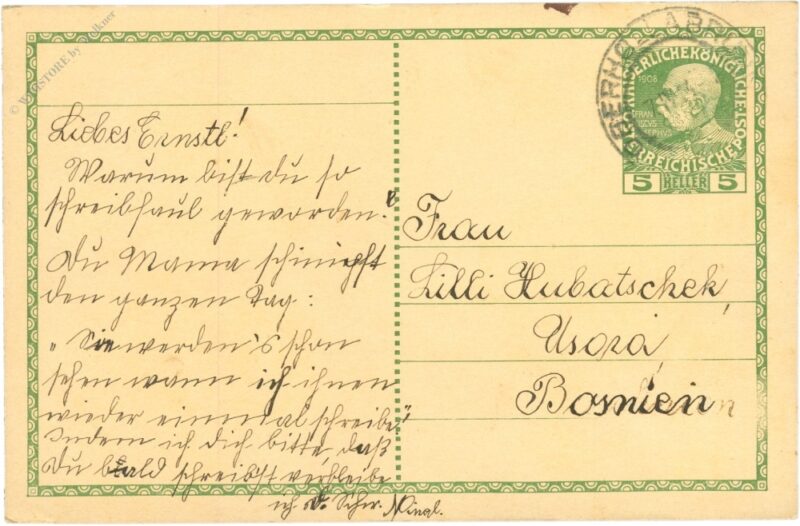 © WEBSTORE by Falkner
Liebes Ernstl!
Warum bist du so
schreibfaul geworden?
Du Mama schimpft
den ganzen Tag:
„Sie werden's schon
sehen wann ich ihnen
wieder einmal schreibe."
Indem ich Dich bitte daß
Du bald schreibst verbleibe
ich d. Schw. Minal.
OBERHOLLABRUNN
KAISERLICHE KÖNIGLICHE
ÖSTERREICHISCHE POST
1908
FRAN
CISCVS
IOSEPHVS
5 HELLER 5
Frau
Lilli Hubatschek,
Usora,
Bosnien